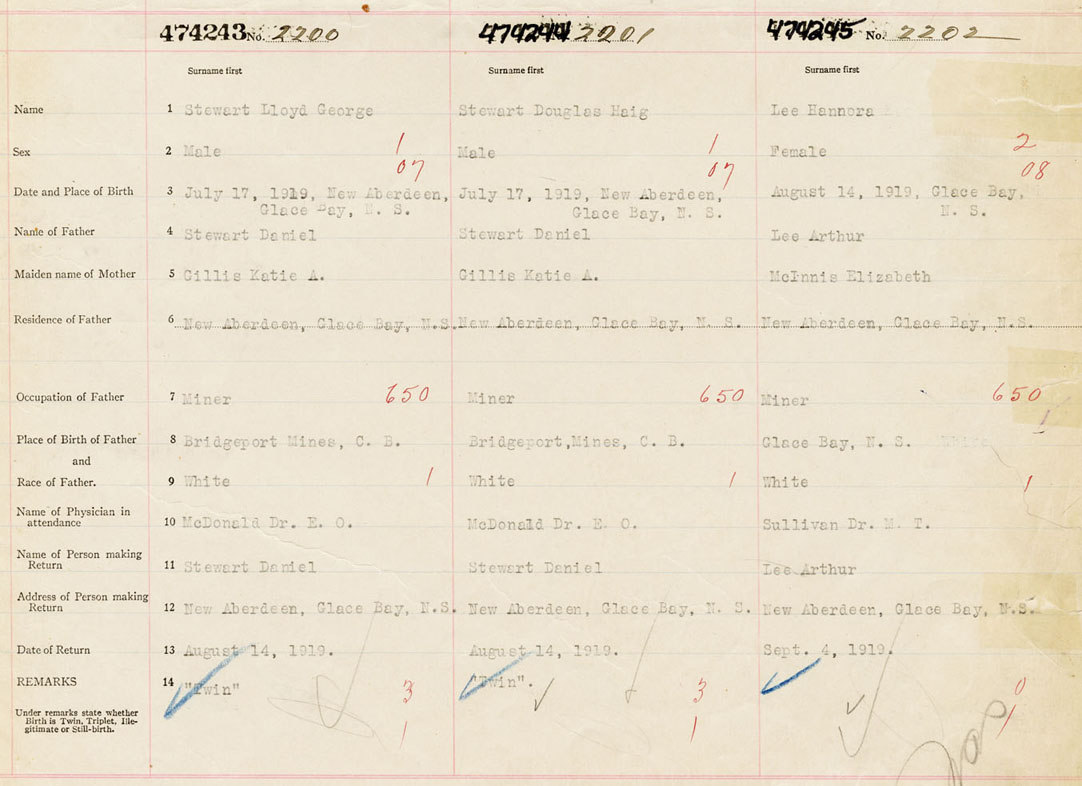 474243 No. 2200 474244 2201 474245 No. 2202
Surname first Surname first Surname first
Name 1 Stewart Lloyd George Stewart Douglas Haig Lee Hannora
Sex 2 Male 1 Male 1 Female 2
07 07 08
Date and Place of Birth 3 July 17, 1919, New Aberdeen, July 17, 1919, New Aberdeen, August 14, 1919, Glace Bay,
Glace Bay, N. S. Glace Bay, N. S. N. S.
Name of Father 4 Stewart Daniel Stewart Daniel Lee Arthur
Maiden name of Mother 5 Gillis Katie A. Gillis Katie A. McInnis Elizabeth
Residence of Father 6 New Aberdeen, Glace Bay, N.S. New Aberdeen, Glace Bay, N. S. New Aberdeen, Glace Bay, N.S.
Occupation of Father 7 Miner 650 Miner 650 Miner 650
Place of Birth of Father 8 Bridgeport Mines, C. B. Bridgeport,Mines, C. B. Glace Bay, N. S. White
and
Race of Father. 9 White 1 White 1 White 1
Name of Physician in
attendance 10 McDonald Dr. E. O. McDonald Dr. E. O. Sullivan Dr. M. T.
Name of Person making
Return 11 Stewart Daniel Stewart Daniel Lee Arthur
Address of Person making
Return 12 New Aberdeen, Glace Bay, N.S. New Aberdeen, Glace Bay, N. S. New Aberdeen, Glace Bay, N.S.
Date of Return 13 August 14, 1919. August 14, 1919. Sept. 4, 1919.
REMARKS 14 "Twin" 3 "Twin". 3 0
Under remarks state whether
Birth is Twin, Triplet, Ille-
gitimate or Still-birth. 1 1 1